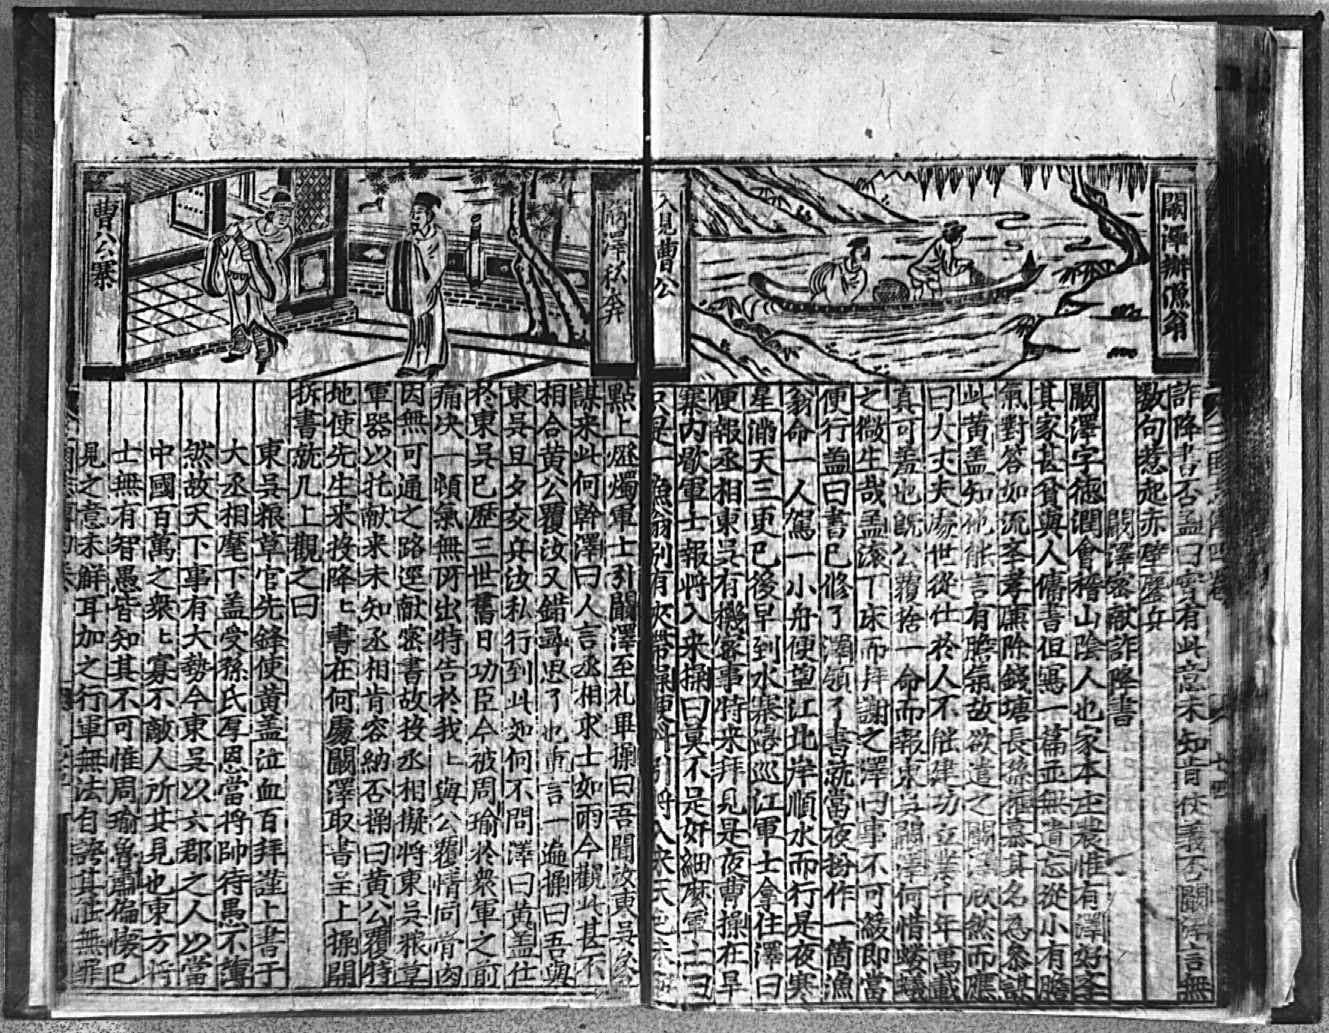 闞澤辦漁翁
入見曹公
詐降書否盖曰實有此意未知肯仗義否闞澤言無
数句惹起赤壁鏖兵
闞澤密献詐降書
闞澤字德潤會稽山陰人也家本庄農惟有澤好李
其家甚貧與人傭書但寫一篇並無遺忘從小有膽
氣對答如流孝廉除錢塘長孫權慕其名為参謀
此黄盖知他能言有膽氣故欲遣之闞澤欣然而應
曰大丈夫處世從仕於人不能建功立業千年萬載
真可羞也既公覆捨一命而報東吳闞澤何惜螻蟻
之微生哉盖滚下床而拜謝之澤曰事不可緩即當
便行盖曰書已修了澤領了書就當夜扮作一箇漁
翁命一人駕一小舟便望江北岸順水而行是夜寒
星滿天三更已後早到水寨邉巡江軍士拿住澤曰
便報丞相東吳有機密事特来拜見是夜曹操在旱
寨内歇軍士報将入来操曰莫不是奸細麽軍士曰
只是一漁翁別有夾帶操便教引將入来天色未明
闞澤秋奔
曹公寨
點上燈燭軍士引闞澤至礼畢操曰吾聞汝東吳参
謀来此何幹澤曰人言丞相求士如雨今觀此甚不
相合黄公覆汝又錯尋思了也声言一遍操曰吾與
東吳旦夕交兵汝私行到此如何不問澤曰黄盖仕
於東吳已歷三世舊日功臣今被周瑜於衆軍之前
痛决一頓氣無所出特告於我〻與公覆情同骨肉
因無可通之路逕献密書故投丞相擬將東吳粮草
軍器以托献来未知丞相肯容納否操曰黄公覆特
地使先生来投降〻書在何處闞澤取書呈上操開
拆書就几上觀之曰
東吳粮草官先鋒使黄盖泣血百拜謹上書于
大丞相麾下盖受孫氏厚恩當將帥待愚不薄
然故天下事有大勢今東吳以六郡之人以當
中國百萬之衆〻寡不敵人所共見也東方將
士無有智愚皆知其不可惟周瑜魯肅偏懐已
見之意未觧耳加之行軍無法自誇其能無罪